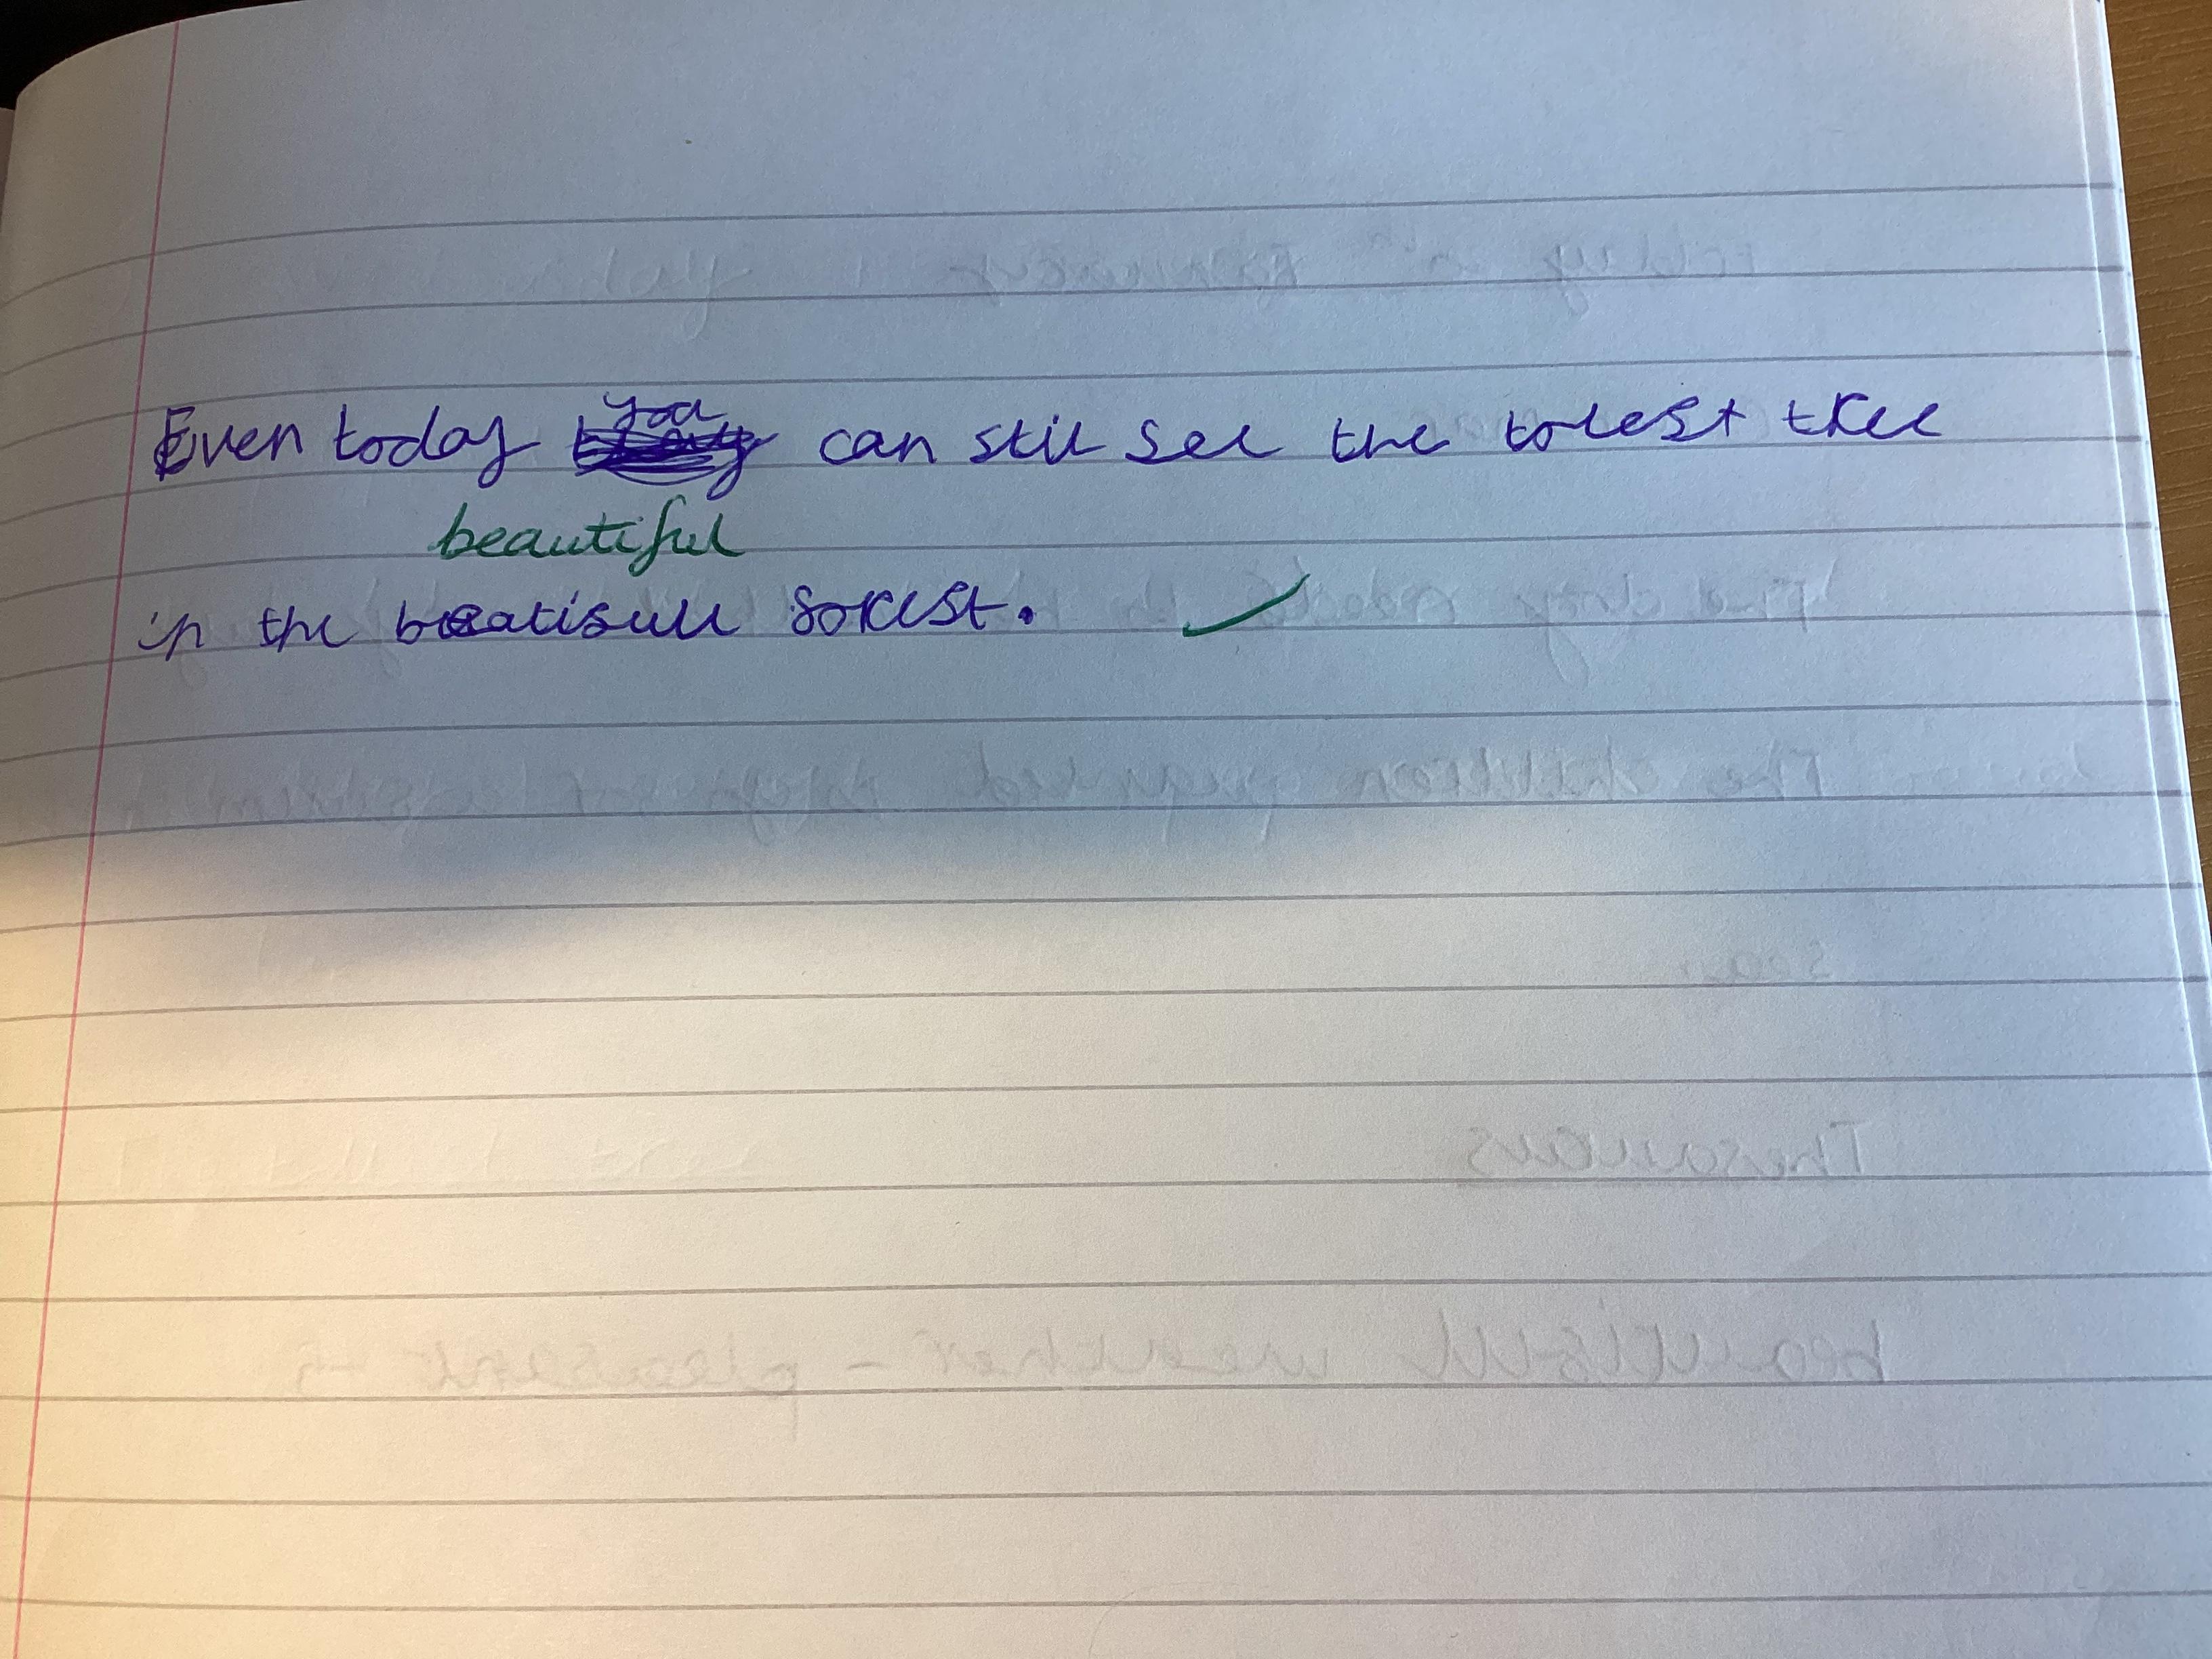 Even today you can still see the tolest tree
beautiful
in the beatifull forest.